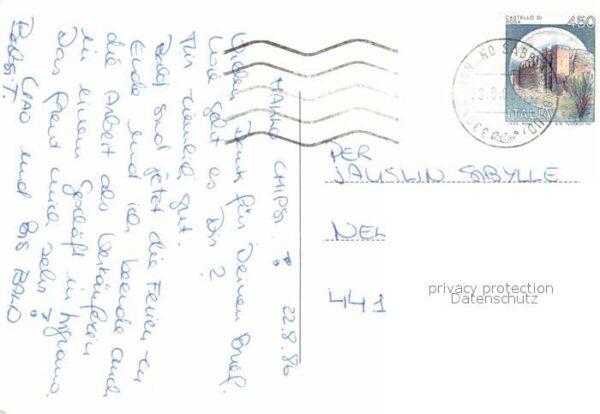 HALLO CHIPS. 22.8.86
Vielen Dank für Deinen Brief.
Wie geht es Dir?
Mir ziemlich gut.
sind jetzt die Ferien zu
Ende und ich beende auch
die Arbeit als Verkäuferin
in einem Geschäft in Lugano.
Das freut mich sehr!
CIAO und BIS BALD
PER
JAUSLIN SIBYLLE
NEL
441
CASTELLO DI
ROSA
450
ITALIA
privacy protection
Datenschutz